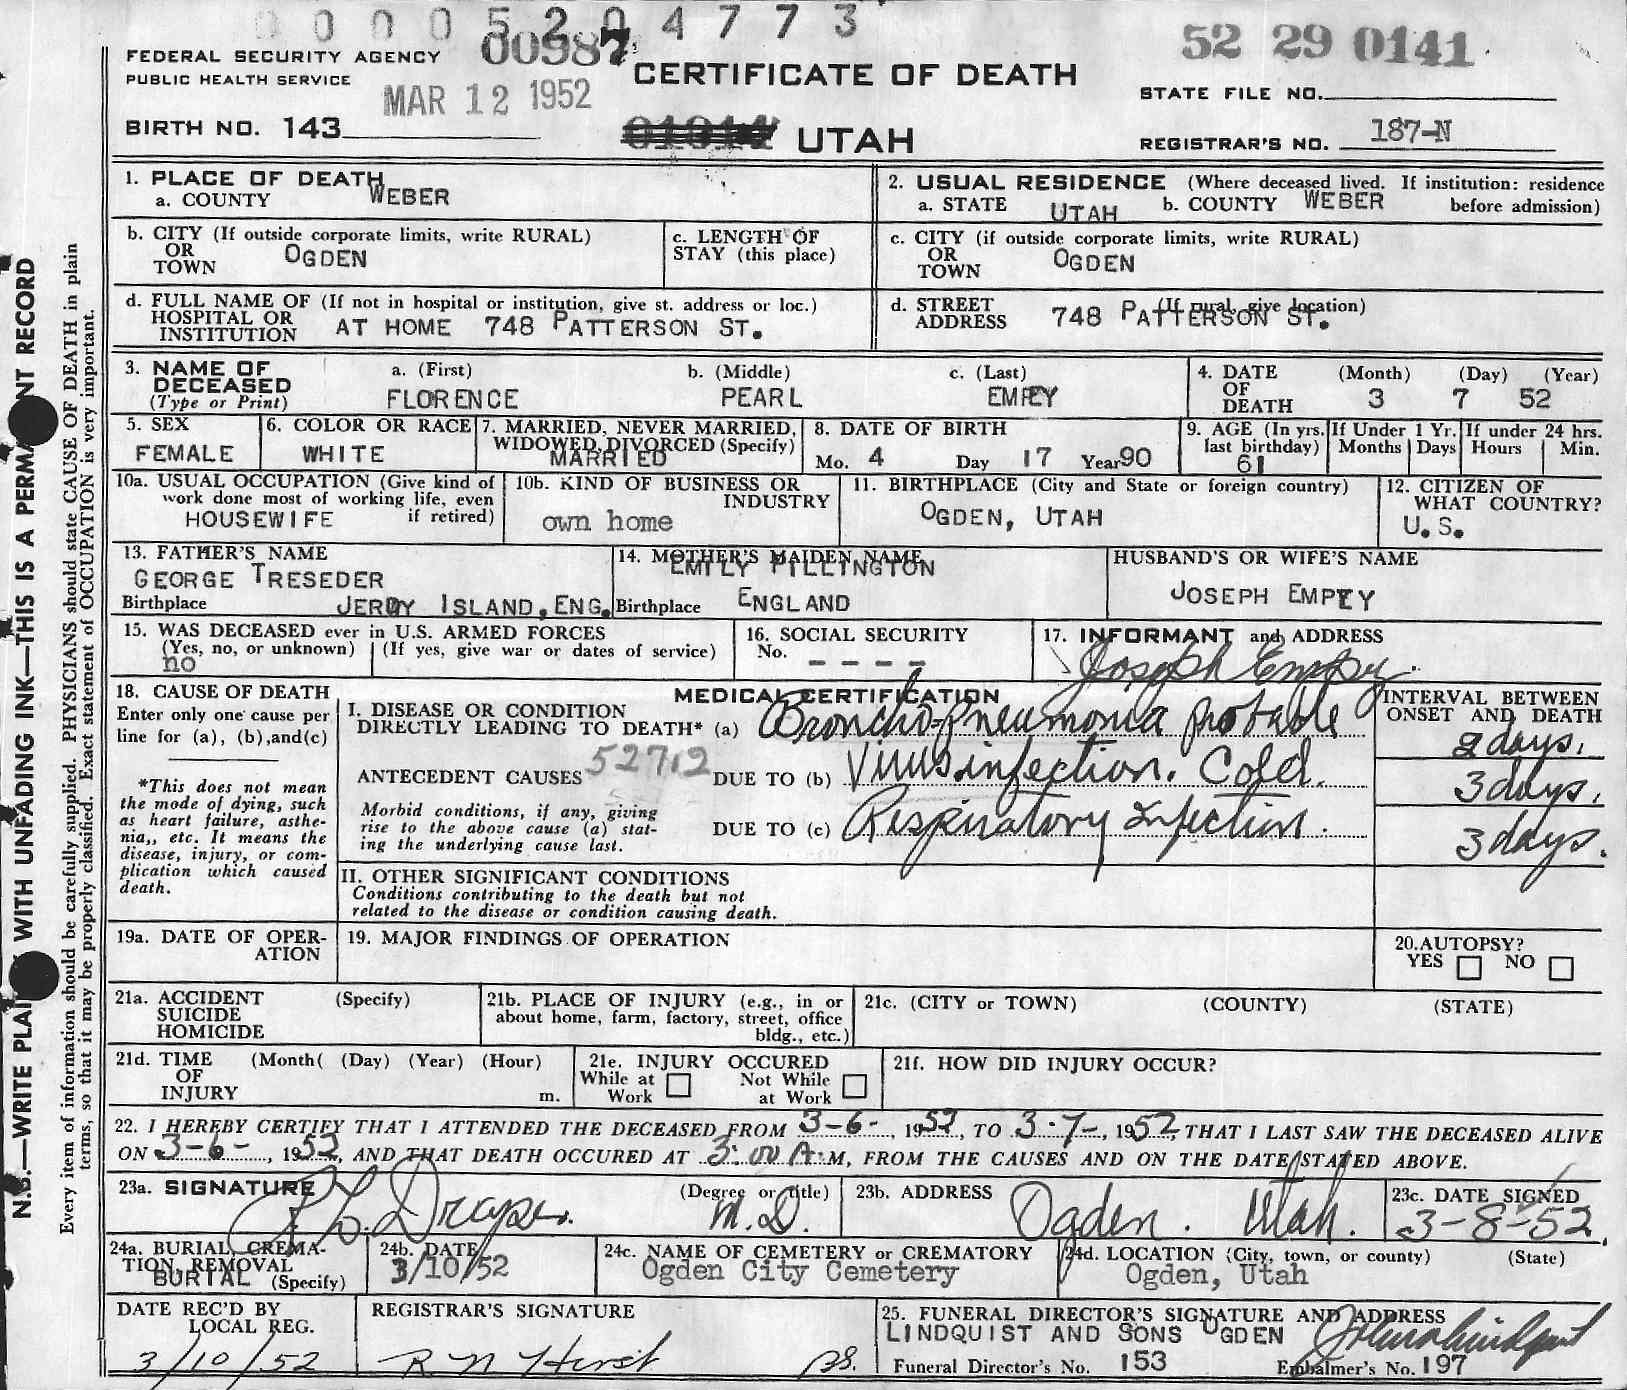 0 0 0 0 5 2 0 4 7 7 3
FEDERAL SECURITY AGENCY
PUBLIC HEALTH SERVICE
00987
MAR 12 1952
CERTIFICATE OF DEATH
52 29 0141
STATE FILE NO.
BIRTH NO. 143
UTAH
REGISTRAR'S NO. 187-N
N.B.—WRITE PLAI WITH UNFADING INK—THIS IS A PERMA NT RECORD
Every item of information should be carefully supplied. PHYSICIANS should state CAUSE OF DEATH in plain
terms, so that it may be properly classified. Exact statement of OCCUPATION is very important.
1. PLACE OF DEATH
a. COUNTY WEBER
2. USUAL RESIDENCE (Where deceased lived. If institution: residence
a. STATE UTAH b. COUNTY WEBER before admission)
b. CITY (If outside corporate limits, write RURAL)
OR
TOWN OGDEN
c. LENGTH OF
STAY (this place)
c. CITY (if outside corporate limits, write RURAL)
OR
TOWN OGDEN
d. FULL NAME OF (If not in hospital or institution, give st. address or loc.)
HOSPITAL OR
INSTITUTION AT HOME 748 PATTERSON ST.
d. STREET (If rural, give location)
ADDRESS 748 PATTERSON ST.
3. NAME OF
DECEASED
(Type or Print)
a. (First) b. (Middle) c. (Last)
FLORENCE PEARL EMPEY
4. DATE
OF
DEATH
(Month) (Day) (Year)
3 7 52
5. SEX
FEMALE
6. COLOR OR RACE
WHITE
7. MARRIED, NEVER MARRIED,
WIDOWED, DIVORCED (Specify)
MARRIED
8. DATE OF BIRTH
Mo. 4 Day 17 Year 90
9. AGE (In yrs.
last birthday)
61
If Under 1 Yr.
Months Days
If under 24 hrs.
Hours Min.
10a. USUAL OCCUPATION (Give kind of
work done most of working life, even
HOUSEWIFE if retired)
10b. KIND OF BUSINESS OR
INDUSTRY
own home
11. BIRTHPLACE (City and State or foreign country)
OGDEN, UTAH
12. CITIZEN OF
WHAT COUNTRY?
U.S.
13. FATHER'S NAME
GEORGE TRESEDER
Birthplace JEROY ISLAND, ENG.
14. MOTHER'S MAIDEN NAME
EMILY PILLINGTON
Birthplace ENGLAND
HUSBAND'S OR WIFE'S NAME
JOSEPH EMPEY
15. WAS DECEASED ever in U.S. ARMED FORCES
(Yes, no, or unknown) (If yes, give war or dates of service)
no
16. SOCIAL SECURITY
No. - - - -
17. INFORMANT and ADDRESS
Joseph Empey.
18. CAUSE OF DEATH
Enter only one cause per
line for (a), (b), and (c)
*This does not mean
the mode of dying, such
as heart failure, asthe-
nia,, etc. It means the
disease, injury, or com-
plication which caused
death.
MEDICAL CERTIFICATION
I. DISEASE OR CONDITION
DIRECTLY LEADING TO DEATH* (a) Broncho-Pneumonia probable
ANTECEDENT CAUSES 527.2 DUE TO (b) Virus infection. Cold.
Morbid conditions, if any, giving
rise to the above cause (a) stat-
ing the underlying cause last.
DUE TO (c) Respiratory Infection.
INTERVAL BETWEEN
ONSET AND DEATH
2 days.
3 days.
3 days.
II. OTHER SIGNIFICANT CONDITIONS
Conditions contributing to the death but not
related to the disease or condition causing death.
19a. DATE OF OPER-
ATION
19. MAJOR FINDINGS OF OPERATION
20. AUTOPSY?
YES NO
21a. ACCIDENT (Specify)
SUICIDE
HOMICIDE
21b. PLACE OF INJURY (e.g., in or
about home, farm, factory, street, office
bldg., etc.)
21c. (CITY or TOWN) (COUNTY) (STATE)
21d. TIME (Month( (Day) (Year) (Hour)
OF
INJURY m.
21e. INJURY OCCURED
While at Not While
Work at Work
21f. HOW DID INJURY OCCUR?
22. I HEREBY CERTIFY THAT I ATTENDED THE DECEASED FROM 3-6-, 1952, TO 3-7-, 1952, THAT I LAST SAW THE DECEASED ALIVE
ON 3-6-, 1952, AND THAT DEATH OCCURED AT 3:00 A.M, FROM THE CAUSES AND ON THE DATE STATED ABOVE.
23a. SIGNATURE (Degree or title)
Draper. M.D.
23b. ADDRESS
Ogden. Utah.
23c. DATE SIGNED
3-8-52.
24a. BURIAL, CREMA-
TION, REMOVAL
BURIAL (Specify)
24b. DATE
3/10/52
24c. NAME OF CEMETERY or CREMATORY
Ogden City Cemetery
24d. LOCATION (City, town, or county) (State)
Ogden, Utah
DATE REC'D BY
LOCAL REG.
3/10/52
REGISTRAR'S SIGNATURE
R N Hirst
25. FUNERAL DIRECTOR'S SIGNATURE AND ADDRESS
LINDQUIST AND SONS OGDEN
Funeral Director's No. 153 Embalmer's No. 197